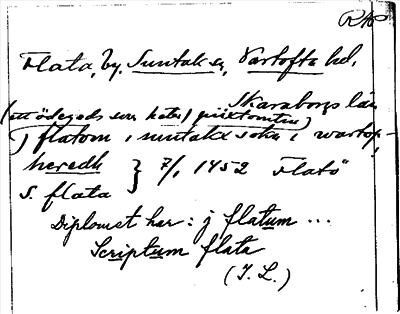 RAP
Flata, by, Suntak sn, Vartofta hd,
Skaraborgs län
(ett ödegods som heter)
j flatom i suntaka sokn i wartop-
heredh } 7/1 1452 Flatö
S. flata
Diplomet har: j flatum ...
Scriptum flata
(I. L.)